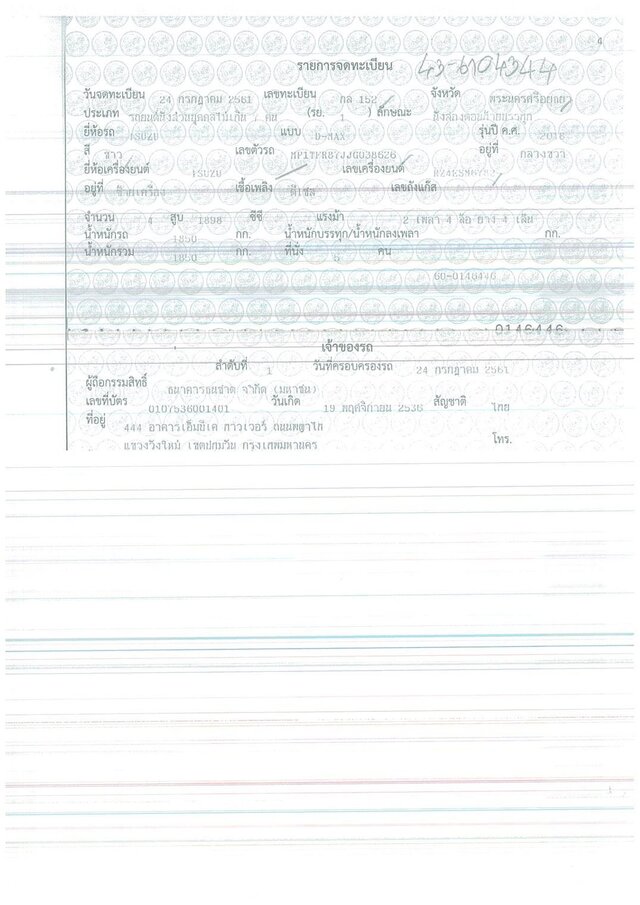 4
รายการจดทะเบียน 43-6104344
วันจดทะเบียน 24 กรกฎาคม 2561 เลขทะเบียน กล 152 จังหวัด พระนครศรีอยุธยา
ประเภท รถยนต์นั่งส่วนบุคคลไม่เกิน 7 คน (รย. 1 ) ลักษณะ นั่งสองตอนท้ายบรรทุก
ยี่ห้อรถ ISUZU แบบ D-MAX รุ่นปี ค.ศ. 2018
สี ขาว เลขตัวรถ MP1TFR87JJG038626 อยู่ที่ กลางขวา
ยี่ห้อเครื่องยนต์ ISUZU เลขเครื่องยนต์
อยู่ที่ ซ้ายเครื่อง เชื้อเพลิง ดีเซล เลขถังแก๊ส
จำนวน 4 สูบ 1898 ซีซี แรงม้า 2 เพลา 4 ล้อ ยาง 4 เส้น
น้ำหนักรถ 1850 กก. น้ำหนักบรรทุก/น้ำหนักลงเพลา กก.
น้ำหนักรวม 1850 กก. ที่นั่ง 5 คน
60-0146446
0146446
เจ้าของรถ
ลำดับที่ 1 วันที่ครอบครองรถ 24 กรกฎาคม 2561
ผู้ถือกรรมสิทธิ์ ธนาคารธนชาต จำกัด (มหาชน)
เลขที่บัตร 0107536001401 วันเกิด 19 พฤศจิกายน 2536 สัญชาติ ไทย
ที่อยู่ 444 อาคารเอ็มบีเค ทาวเวอร์ ถนนพญาไท
แขวงวังใหม่ เขตปทุมวัน กรุงเทพมหานคร โทร.